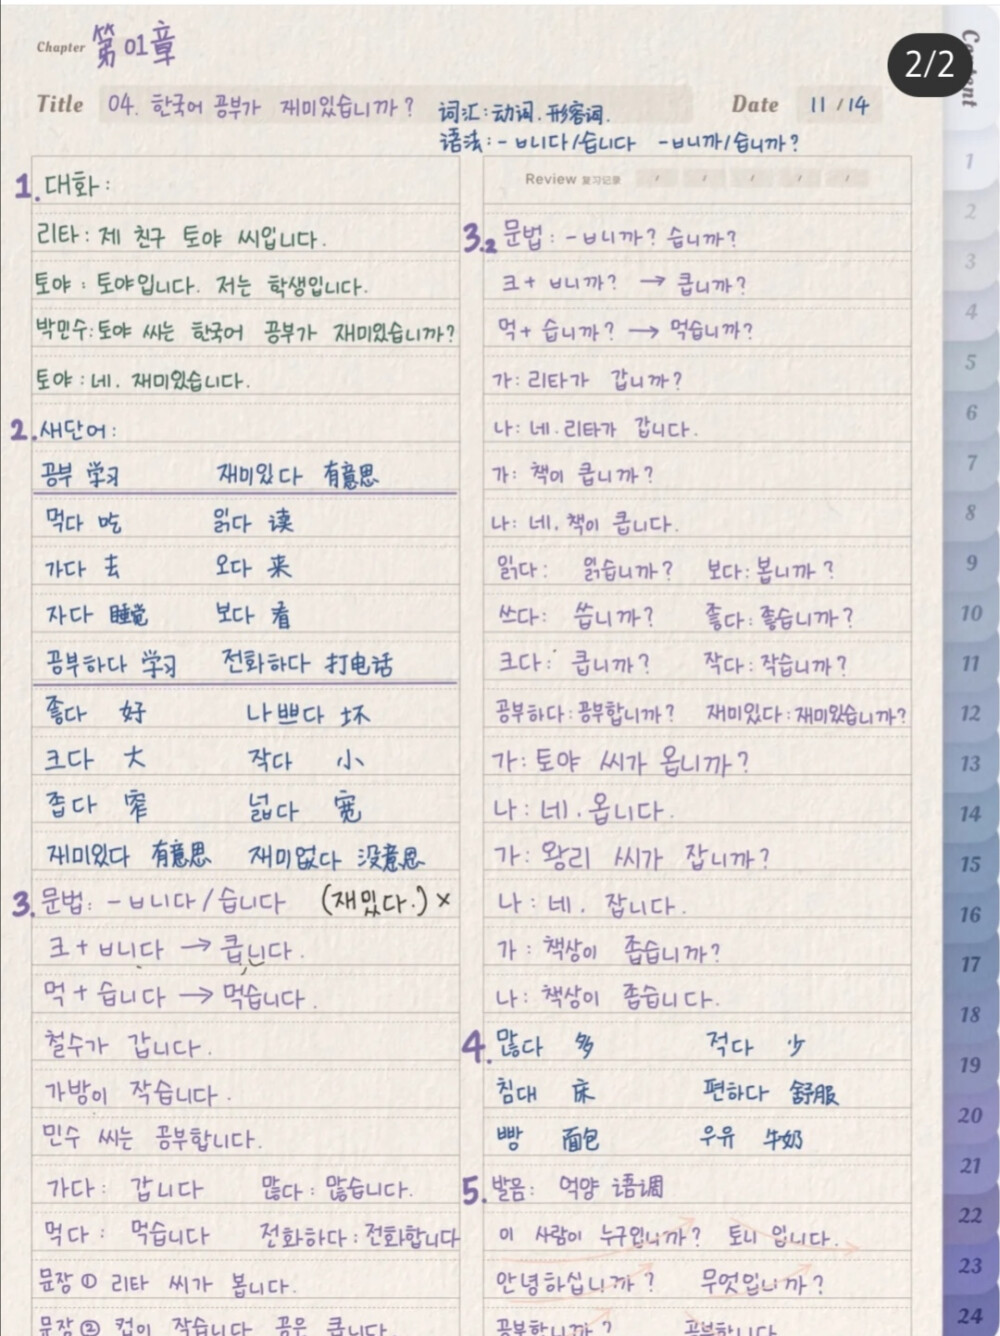 2/2
Chapter 第01章
Title 04. 한국어 공부가 재미있습니까?
词汇:动词.形容词.
Date 11 / 14
语法:-ㅂ니다/습니다 -ㅂ니까/습니까?
Content
1. 대화:
리타: 제 친구 토야 씨입니다.
토야: 토야입니다. 저는 학생입니다.
박민수: 토야 씨는 한국어 공부가 재미있습니까?
토야: 네. 재미있습니다.
2. 새단어:
공부 学习 재미있다 有意思
먹다 吃 읽다 读
가다 去 오다 来
자다 睡觉 보다 看
공부하다 学习 전화하다 打电话
좋다 好 나쁘다 坏
크다 大 작다 小
좁다 窄 넓다 宽
재미있다 有意思 재미없다 没意思
3. 문법: -ㅂ니다/습니다 (재밌다.)×
크+ㅂ니다 → 큽니다.
먹+습니다 → 먹습니다.
철수가 갑니다.
가방이 작습니다.
민수 씨는 공부합니다.
가다: 갑니다 많다: 많습니다.
먹다: 먹습니다 전화하다: 전화합니다
문장 ① 리타 씨가 봅니다.
문장 ② 컵이 작습니다. 공은 큽니다.
Review 复习记录
3.2 문법: -ㅂ니까? 습니까?
크+ㅂ니까? → 큽니까?
먹+습니까? → 먹습니까?
가: 리타가 갑니까?
나: 네. 리타가 갑니다.
가: 책이 큽니까?
나: 네. 책이 큽니다.
읽다: 읽습니까? 보다: 봅니까?
쓰다: 씁니까? 좋다: 좋습니까?
크다: 큽니까? 작다: 작습니까?
공부하다: 공부합니까? 재미있다: 재미있습니까?
가: 토야 씨가 옵니까?
나: 네. 옵니다.
가: 왕리 씨가 잡니까?
나: 네. 잡니다.
가: 책상이 좁습니까?
나: 책상이 좁습니다.
4. 많다 多 적다 少
침대 床 편하다 舒服
빵 面包 우유 牛奶
5. 발음: 억양 语调
이 사람이 누구입니까? 토니 입니다.
안녕하십니까? 무엇입니까?
공부합니까? 공부합니다.
1
2
3
4
5
6
7
8
9
10
11
12
13
14
15
16
17
18
19
20
21
22
23
24